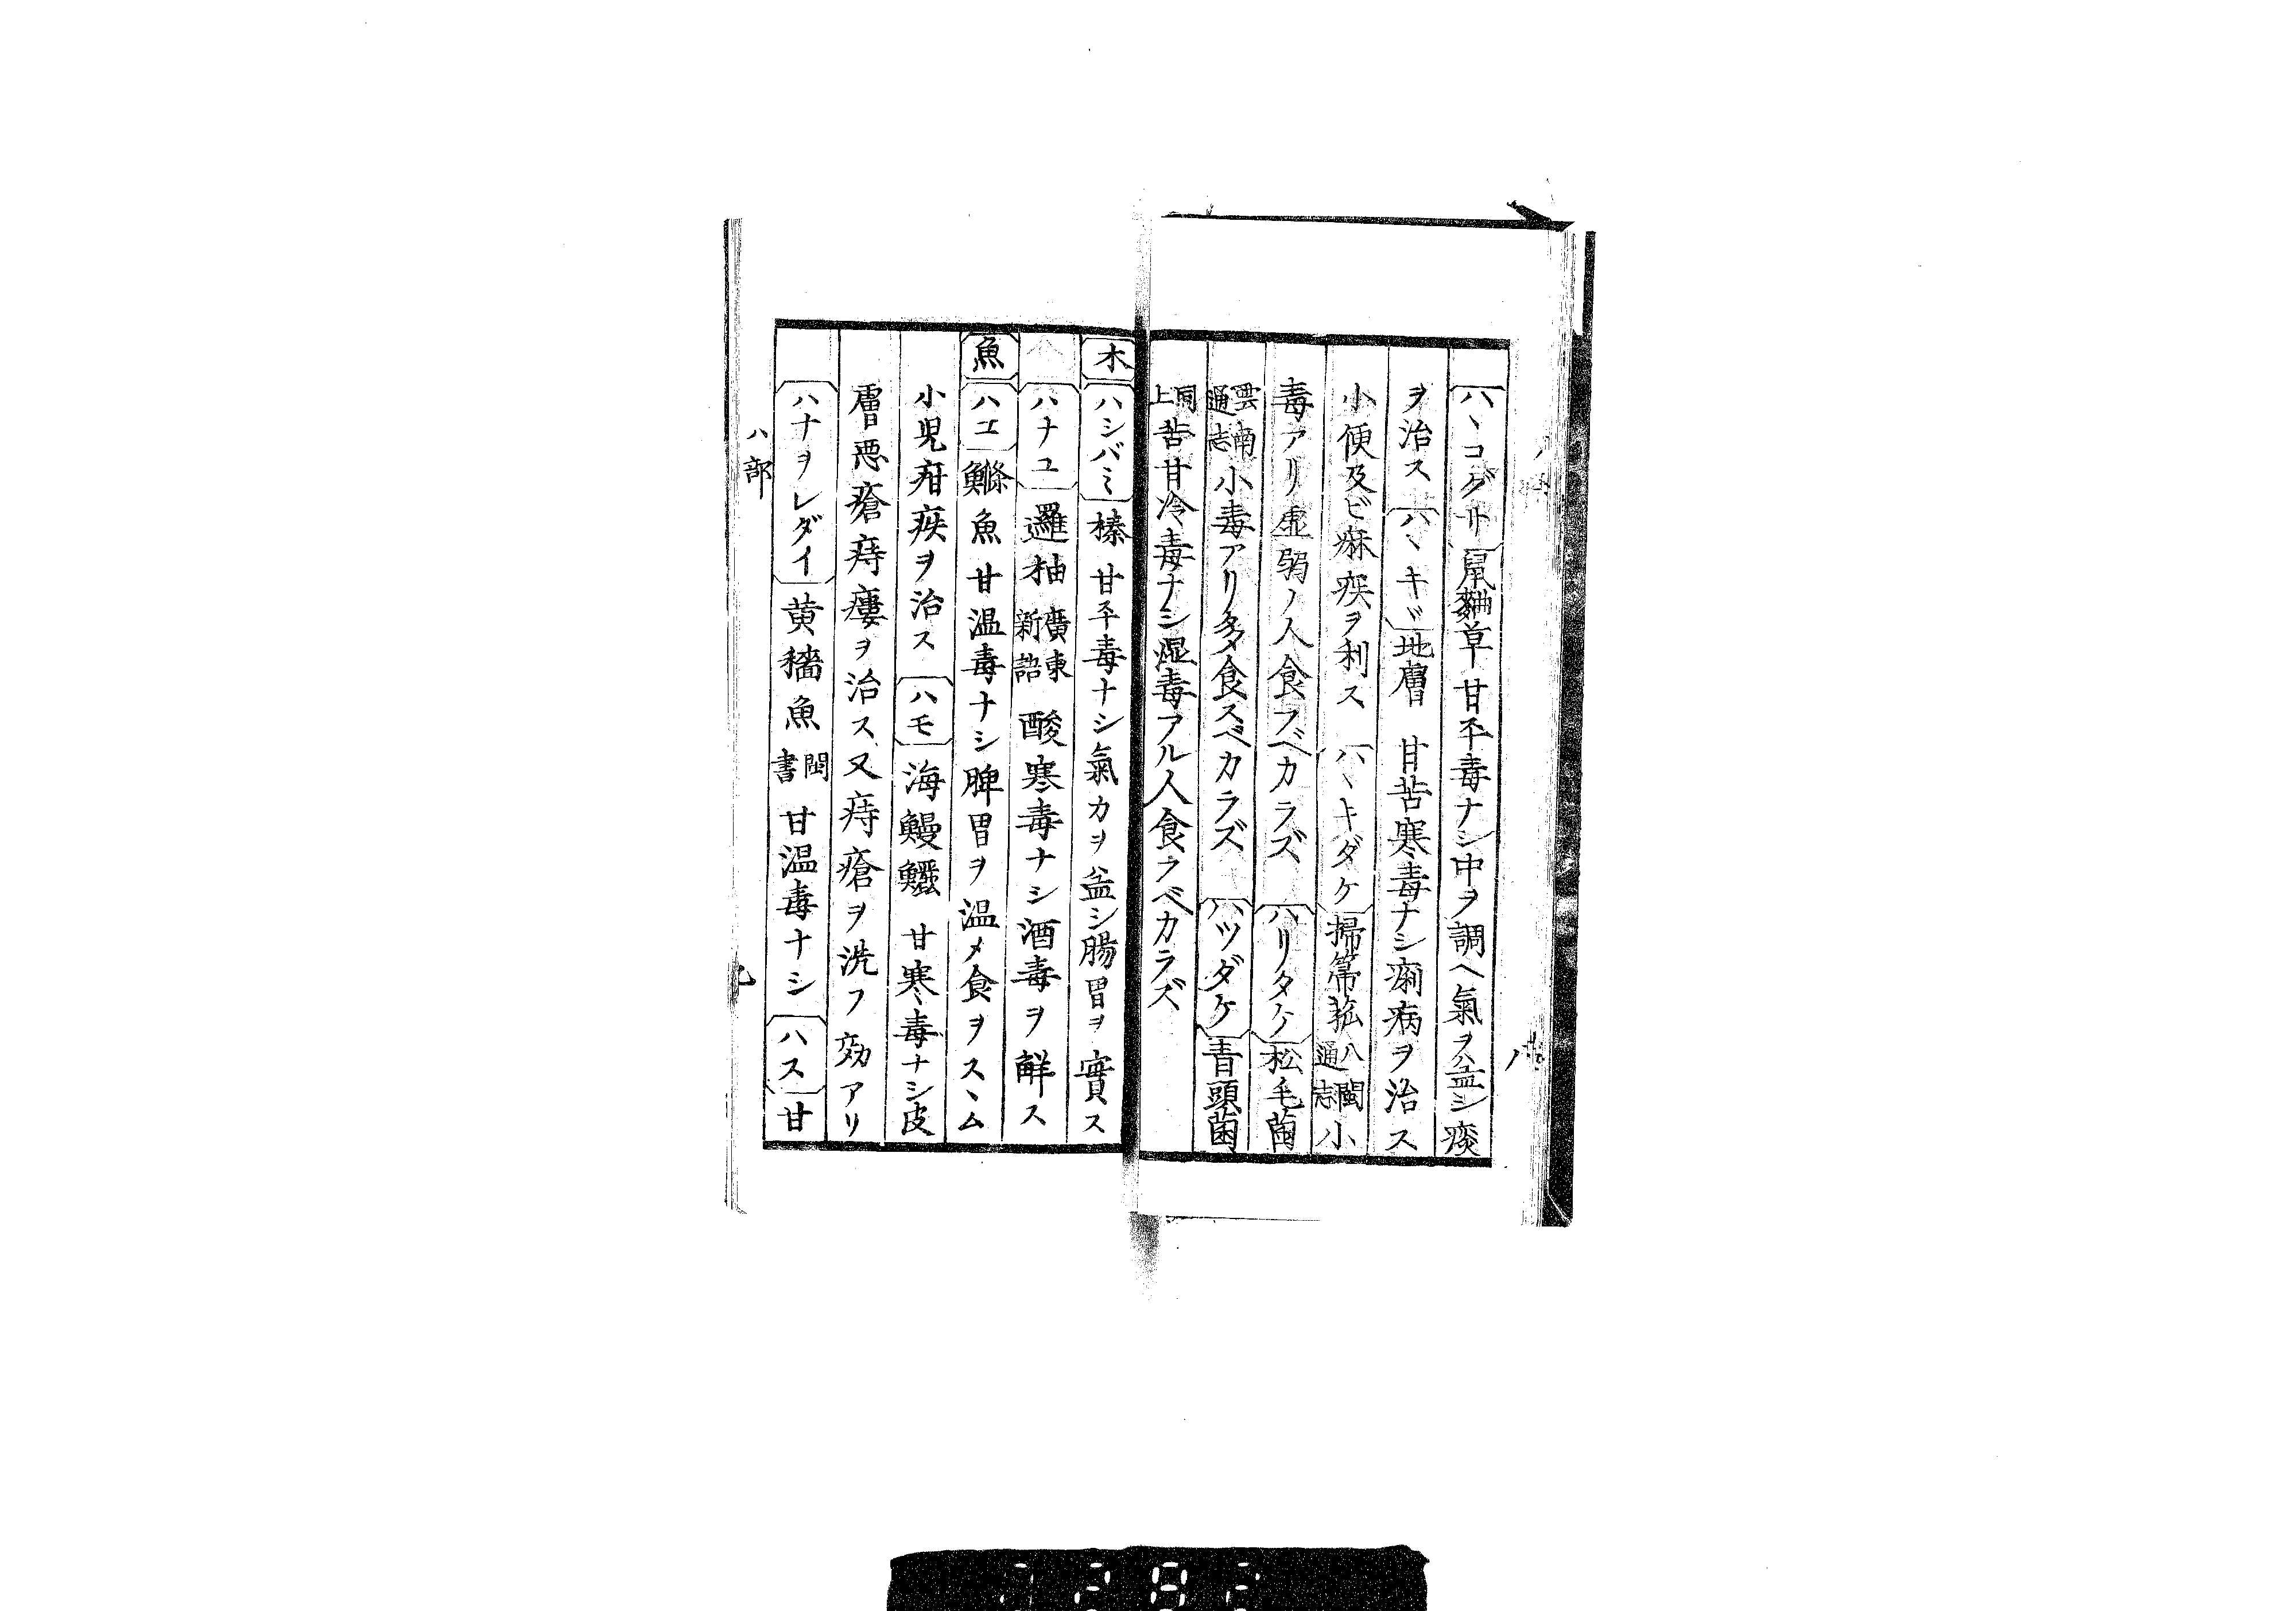 ハヽコグサ 鼠麹草 甘平毒ナシ中ヲ調ヘ氣ヲ益シ痰
ヲ治ス ハヽキヾ 地膚 甘苦寒毒ナシ痢病ヲ治ス
小便及ビ痳疾ヲ利ス ハヽキダケ 掃箒菰 八閩通志 小
毒アリ虚弱ノ人食フベカラズ ハリタケ 松毛菌
雲南通志 小毒アリ多ク食スベカラズ ハツダケ 青頭菌
同上 苦甘冷毒ナシ湿毒アル人食フベカラズ
木 ハシバミ 榛 甘平毒ナシ氣力ヲ益シ腸胃ヲ實ス
ハナユ 邏柚 廣東新語 酸寒毒ナシ酒毒ヲ解ス
魚 ハエ 鰷魚 甘温毒ナシ脾胃ヲ温メ食ヲスヽム
小児疳疾ヲ治ス ハモ 海鰻鱺 甘寒毒ナシ皮
膚悪瘡痔瘻ヲ治ス又痔瘡ヲ洗フ効アリ
ハナヲレダイ 黄穡魚 閩書 甘温毒ナシ ハス 甘
ハ部
九